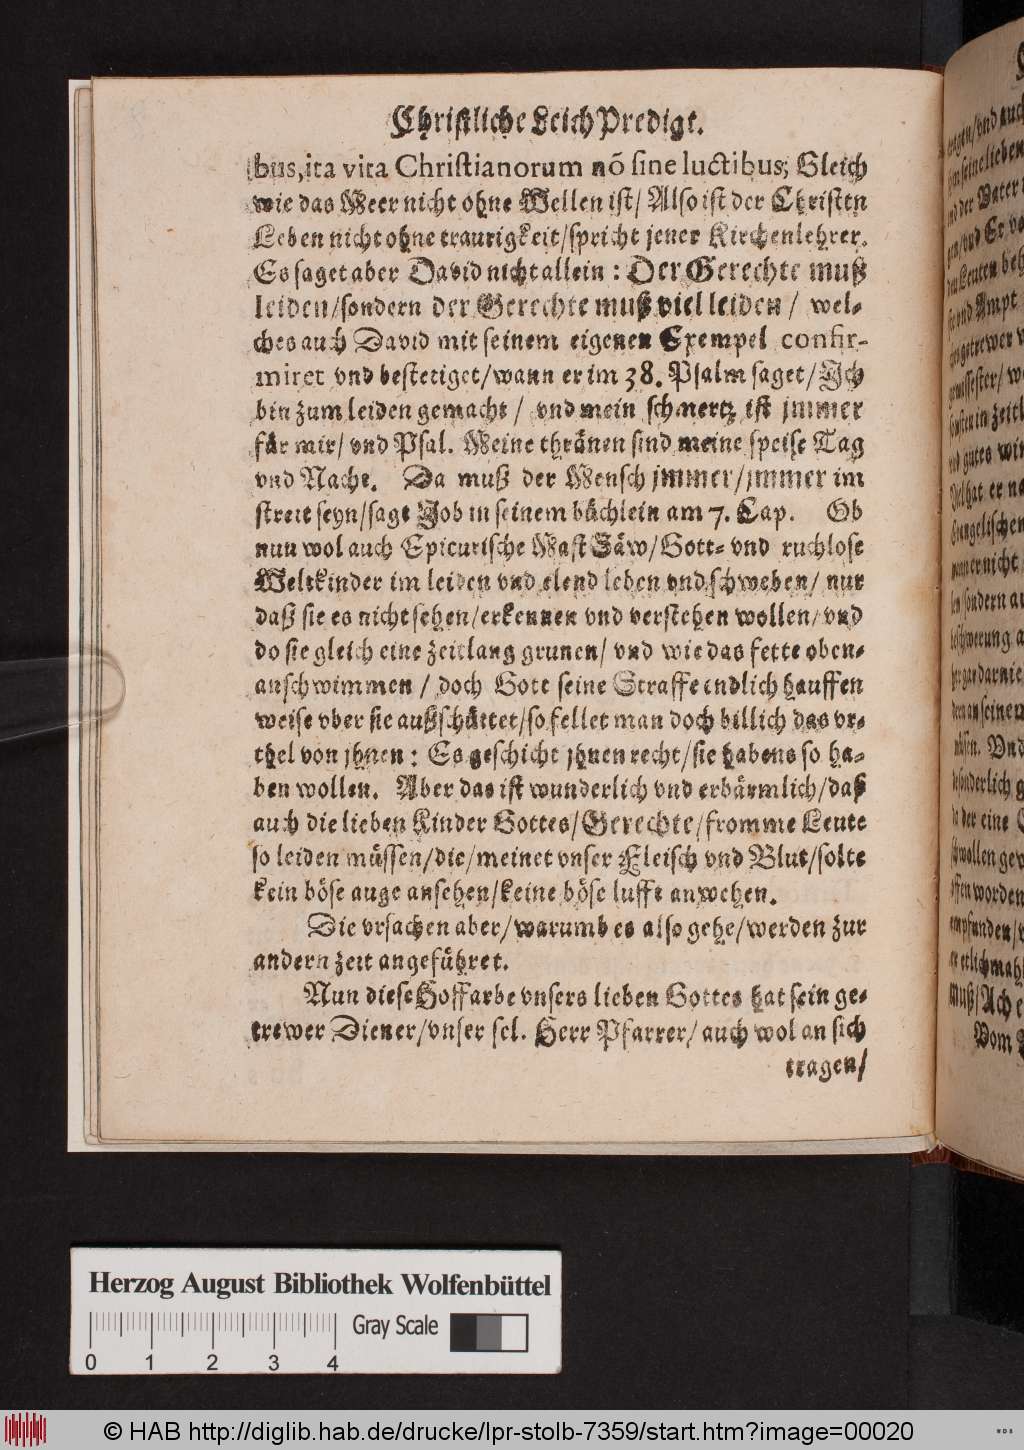 Christliche Leich Predigt.
bus, ita vita Christianorum nō sine luctibus; Gleich
wie das Meer nicht ohne Wellen ist/ Also ist der Christen
Leben nicht ohne traurigkeit/spricht jener Kirchenlehrer.
Es saget aber David nicht allein: Der Gerechte muß
leiden/sondern der Gerechte muß viel leiden/ wel-
ches auch David mit seinem eigenen Exempel confir-
miret vnd bestetiget/wann er im 38. Psalm saget/Ich
bin zum leiden gemacht/ vnd mein schmertz ist jmmer
für mir/ vnd Psal. Meine thränen sind meine speise Tag
vnd Nacht. Da muß der Mensch jmmer/jmmer im
streit seyn/sagt Job in seinem büchlein am 7. Cap. Ob
nun wol auch Epicurische Mast Säw/Gott- vnd ruchlose
Weltkinder im leiden vnd elend leben vnd schweben/ nur
daß sie es nicht sehen/erkennen vnd verstehen wollen/vnd
do sie gleich eine zeitlang grunen/ vnd wie das fette oben-
anschwimmen/ doch Gott seine Straffe endlich hauffen
weise vber sie außschüttet/so fellet man doch billich das vr-
thel von jhnen: Es geschicht jhnen recht/sie habens so ha-
ben wollen. Aber das ist wunderlich vnd erbärmlich/daß
auch die lieben Kinder Gottes/Gerechte/fromme Leute
so leiden müssen/die/meinet vnser Fleisch vnd Blut/solte
kein böse auge ansehen/keine böse lufft anwehen.
Die vrsachen aber/warumb es also gehe/werden zur
andern zeit angeführet.
Nun diese Hoffarbe vnsers lieben Gottes hat sein ge-
trewer Diener/vnser sel. Herr Pfarrer/ auch wol an sich
tragen/
Herzog August Bibliothek Wolfenbüttel
Gray Scale
0 1 2 3 4
© HAB http://diglib.hab.de/drucke/lpr-stolb-7359/start.htm?image=00020